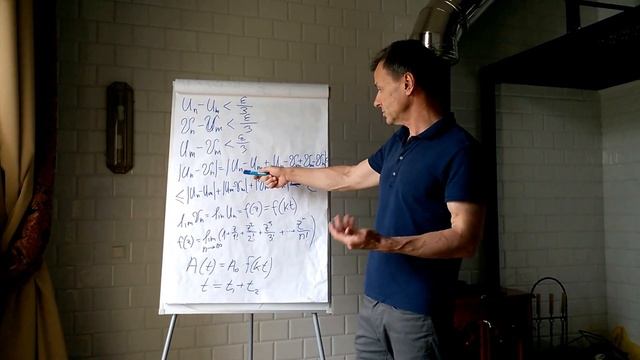 Uₙ - Uₘ < ε/3
𝒱ₙ - 𝒱ₘ < ε/3
Uₘ - 𝒱ₘ < ε/3
|Uₙ - 𝒱ₙ| = |Uₙ - Uₘ + Uₘ - 𝒱ₘ + 𝒱ₘ - 𝒱ₙ
≤ |Uₙ - Uₘ| + |Uₘ
lim 𝒱ₙ = lim Uₙ = f(z) = f(kt)
f(z) = lim n→∞ (1 + z/1! + z²/2! + z³/3! + ... zⁿ/n!)
A(t) = A₀ f(kt)
t = t₁ + t₂